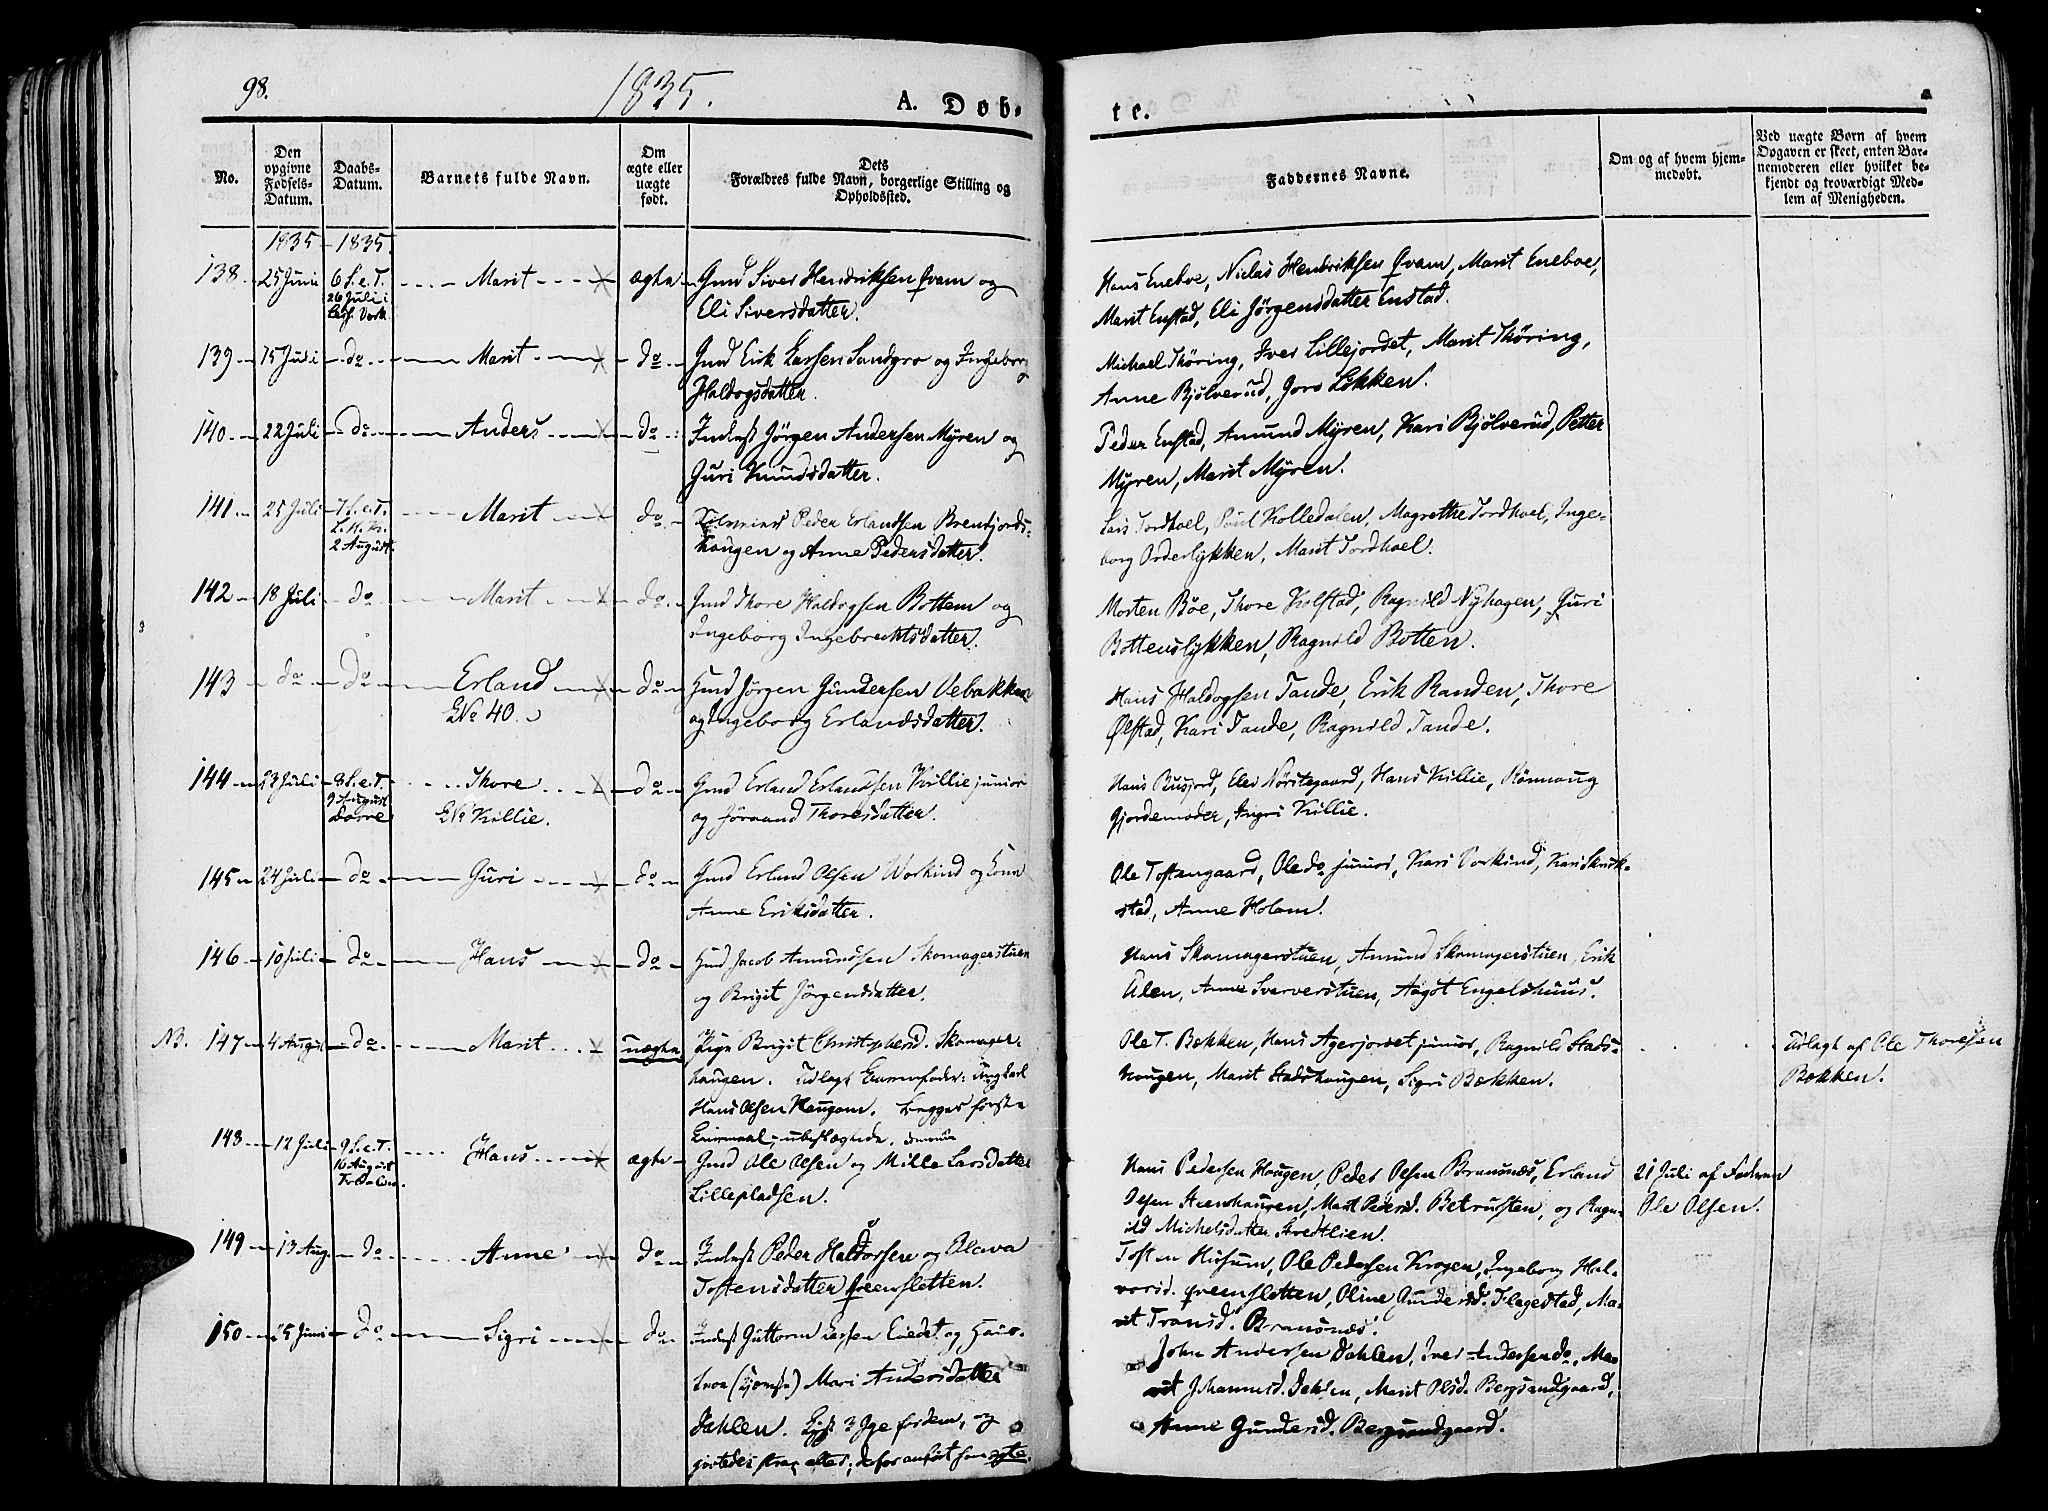 98.
1835.
A. Døb-
te.
No.
Den opgivne Fødsels-Datum.
Daabs-Datum.
Barnets fulde Navn.
Om ægte eller uægte født.
Dets Forældres fulde Navn, borgerlige Stilling og Opholdssted.
Faddernes Navne.
Om og af hvem hjem-medøbt.
Ved uægte Børn af hvem Opgaven er skeet, enten Bar-nemoderen eller hvilket be-kjendt og troværdigt Med-lem af Menigheden.
1835 1835.
138 25 Juni 6 S.e.T. 26 Juli Marit ægte Gmd Siver Hendriksen Qvam og
Eli Siversdatter.
Hans Eneboe, Niclas Hendriksen Qvam, Marit Eneboe,
Marit Enstad, Eli Jörgensdatter Enstad.
139 15 Juli do Marit do Gmd Erik Larsen Sandgro og Ingeborg
Haldogsdatter.
Michael Thöring, Iver Lillejordet, Marit Thöring,
Anne Bjölverud, Joro Lökken.
140 22 Juli do Anders do Inderst Jörgen Andersen Myren og
Guri Knudsdatter.
Peder Enstad, Amund Myren, Kari Bjölverud, Petter
Myren, Marit Myren.
141 25 Juli 7 S.e.T. L.H.K. 2 August Marit do Peder Erlandsen Brenfjords-
haugen og Anne Pedersdatter.
Lars Jordhoel, Poul Kolledalen, Magrethe Jordhoel, Inge-
borg Orderlykken, Marit Jordhoel.
142 18 Juli do Marit do Gmd Thore Haldogsen Bottem og
Ingeborg Ingebrechtsdatter.
Morten Böe, Thore Kolstad, Ragnild Nyhagen, Guri
Bottenslykken, Ragnild Botten.
143 do do Erland do Hmd Jörgen Gundersen Vebakken
No 40.
og Ingeborg Erlandsdatter.
Hans Haldogsen Tande, Erik Randen, Thore
Ølstad, Kari Tande, Ragnild Tande.
144 23 Juli 8 S.e.T. 9 August Dovre Thore do Gmd Erland Erlandsen Killie junior
No Killie.
og Joraand Thoresdatter.
Hans Busjord, Elev Nörstegaard, Hans Killie, Rönnaug
Gjordemoder, Ingri Killie.
145 24 Juli do Guri do Gmd Erland Olsen Workind og Kone
Anne Eriksdatter.
Ole Tofsengaard, Ole do junior, Kari Vorkind, Kari Skrik-
stad, Anne Holam.
146 10 Juli do Hans do Hmd Jacob Amundsen Skomagerstuen
og Brigit Jörgensdatter.
Hans Skomagerstuen, Amund Skomagerstuen, Erik
Ulen, Anne Sververstuen, Aagot Engelshuus.
NB. 147 4 August do Marit uægte Pige Brigit Christophersd. Skomager-
haugen. Udlagt Barnefader: Ungkarl
Hans Olsen Haugom. Begges første
Leiermaal, ubeslægtede.
Ole T. Bækken, Hans Agerjordet junior, Ragnild Stads-
haugen, Marit Stadshaugen, Sigri Bækken.
Udlagt af Ole Thoresen
Bækken.
148 12 Juli 9 S.e.T. 16 August Hans ægte Gmd Ole Olsen og Mille Larsdatter
Lillepladsen.
Hans Pedersen Haugen, Peder Olsen Bransnæs, Erland
Olsen Steenhaugen, Marit Pedersd. Betrusten, og Ragn-
ild Michelsdatter Bredlien.
21 Juli af Faderen
Ole Olsen.
149 13 Aug. do Anne do Inderst Peder Haldorsen og Olava
Tostensdatter Qvernsletten.
Tosten Husum, Ole Pedersen Krogen, Ingeborg Hal-
vorsd. Qvernsletten, Oline Gundersd. Flagestad, Ma-
rit Transd. Bransnæs.
150 25 Juni do Sigri do Inderst Guttorm Larsen Eiedet og Hus-
troe Mari Andersdatter
Dahlen.
John Andersen Dahlen, Iver Andersen do, Ma-
rit Johannesd. Dahlen, Marit Olsd. Bergsandgaard,
Anne Gundersd. Bergsandgaard.